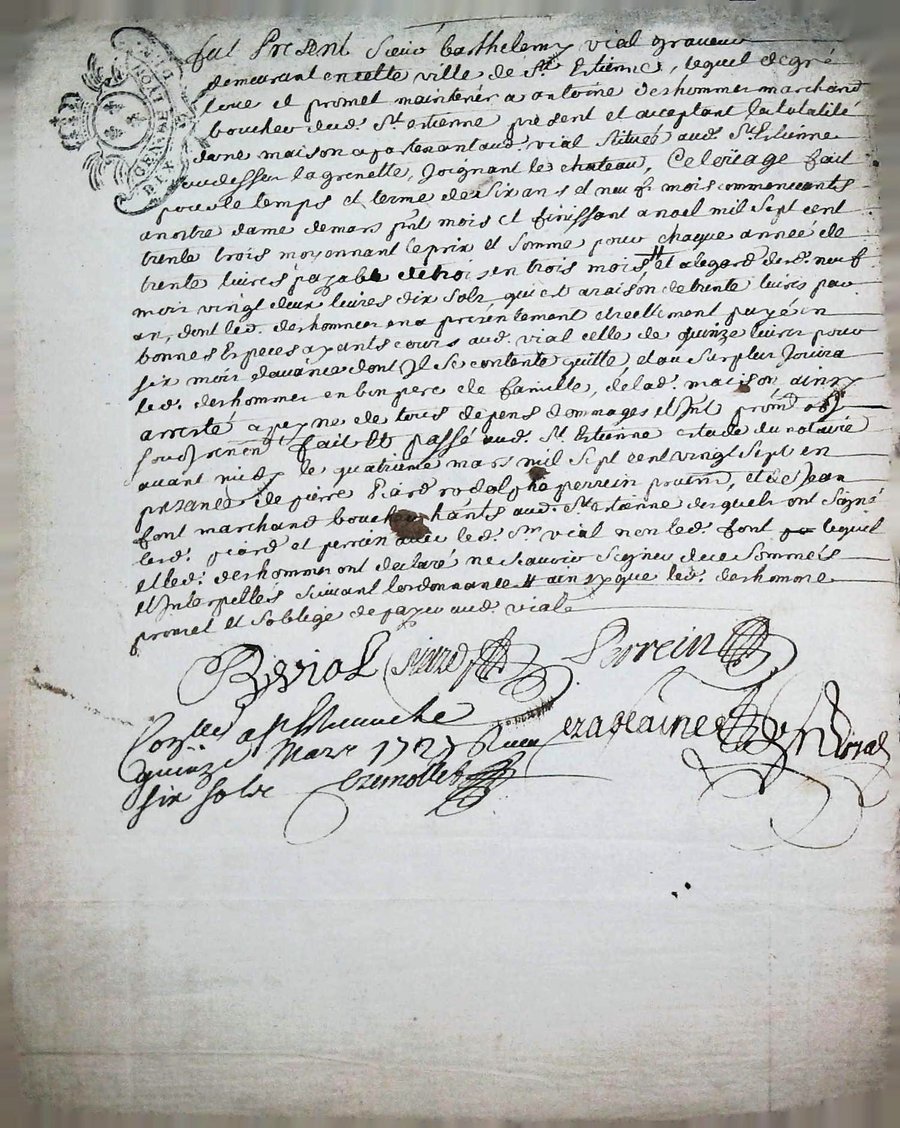 GEN. DE LYON
DIX D
fut Present Sieur barthelemy vial graveur
demeurant en cette ville de St. Estienne, lequel de gré
loue et promet maintenir a antoine deshommer marchand
boucher dud. St. estienne present et acceptant la totalité
dune maison apartenant aud. vial Situeé aud. St. Estienne
audessus la grenette, Joignant le chateau, Celoüage fait
pour le temps et terme de Six ans et neuf mois commencants
a nostre dame de mars pnt mois et finissant a noel mil Sept cent
trente trois moyonnant le prix et Somme pour chaque anneé de
trente livres payable en trois mois et alegard desd. neuf
mois vingt deux livres dix Sols qui est a raison de trente livres par
an, dont led. deshommer en a presentement et reellement payé en
bonnes Especes ayants cours aud. vial celle de quinze livres pour
six mois davance dont Il Se contente quitte, et au Surplus Jouira
led. deshommer en bon pere de famille, delad. maison ainsy
arresté a peyne de tous depens dommages et Int
fait Et passé aud. St. Estienne estude du notaire
avant midy le quatrieme mars mil Sept cent vingt Sept en
presance de pierre Picard rodolphe perrein et de Jean
font marchand boucher aud. St. estienne desquels ont Signé
lesd. picard et perrein avec led. Sr. vial non led. font lequel
et led. deshommer ont declaré ne Scavoir Signer de ce Sommés
et Interpellés Suivant lordonnance ainsy que led. deshomme
promet et Soblige de payer aud. vial
B vial Picard Perrein
Con.lle a St. Estienne le
quinze Mars 1727 Recu
six sols